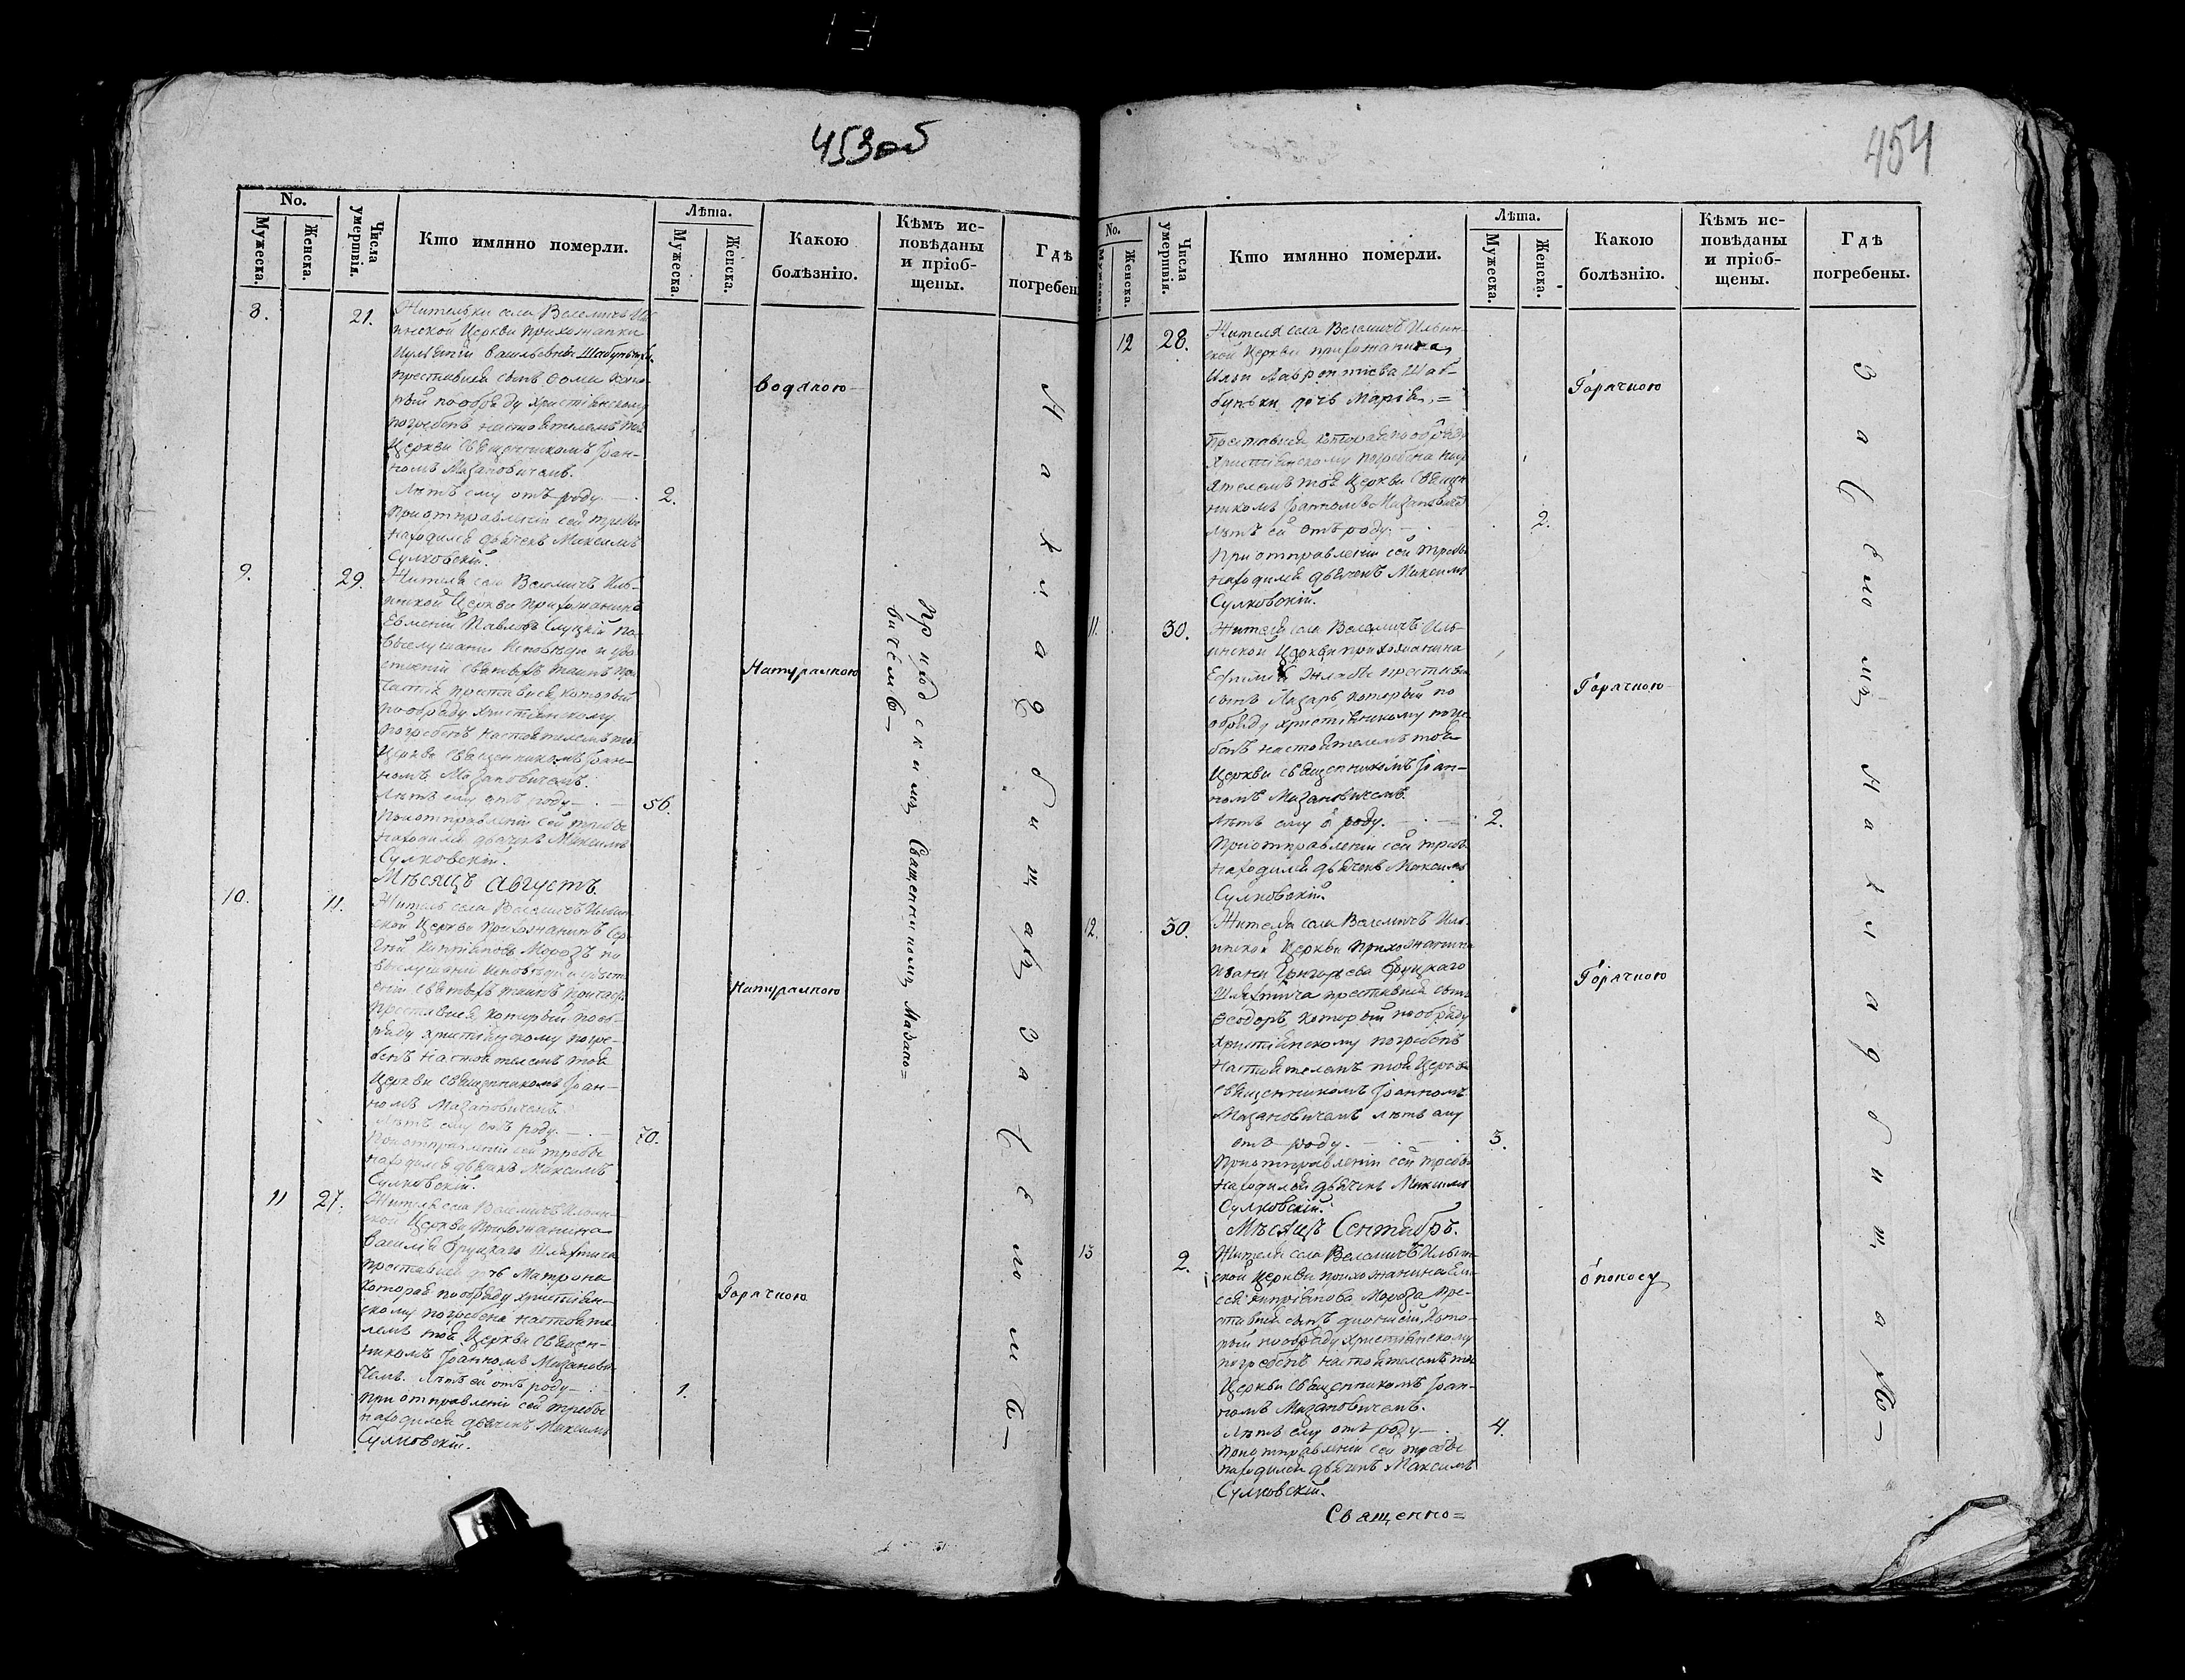 453об
No.
Мужеска.
Женска.
Числа умершвія.
Кто имянно померли.
Лѣта.
Мужеска.
Женска.
Какою болѣзнію.
Кѣмъ ис-
повѣданы
и пріоб-
щены.
Гдѣ
погребен
8.
21.
Жительки села Велемичъ Иль
инской Церкви прихожанки
Васильевны
преставися сынъ Фома кото-
рый по обряду христіанскому
погребенъ настоятелемъ той
Церкви священникомъ Іоан-
номъ Мазановичемъ.
Лѣтъ ему отъ роду. — .
2.
При отправленіи сей требы
находился дьячекъ Максимъ
Сулковскій.
водяною
9.
29.
Жителя села Велемичъ Иль-
инской Церкви прихожанинъ
Евменій Павловъ Слуцкій по
выслушаніи исповѣди и
святыхъ таинъ при
частія преставися, который
по обряду христіанскому
погребенъ настоятелемъ той
Церкви священникомъ Іоан-
номъ Мазановичемъ.
Лѣтъ ему отъ роду — . —
56.
При отправленіи сей требы
находился дьячекъ Максимъ
Сулковскій.
Натуралною
Мѣсяцъ Августъ.
10.
11.
Житель села Велемичъ Ильин
ской Церкви прихожанинъ Сер
гій Кипріановъ Морозъ по
выслушаніи исповѣди и
святыхъ таинъ причастія
преставися который по об-
ряду христіанскому погре-
бенъ настоятелемъ той
Церкви священникомъ Іоан-
номъ Мазановичемъ.
Лѣтъ ему отъ роду. — . —
70.
При отправленіи сей требы
находился дьячекъ Максимъ
Сулковскій.
Натуралною
11
27.
Жителя села Велемичъ Ильин-
ской Церкви прихожанина
Василія Бруцкаго Шляхтича
преставися дочь Матрона
которая по обряду христіан-
скому погребена настояте-
лемъ той Церкви священ-
никомъ Іоанномъ Мазанови-
чемъ. Лѣтъ ей отъ роду —
1.
При отправленіи сей требы
находился дьячекъ Максимъ
Сулковскій.
Горячкою
Приходскимъ Священникомъ Мазано=
вичемъ —
На кладбищахъ За Селомъ —
454
No.
Мужеска.
Женска.
Числа умершвія.
Кто имянно померли.
Лѣта.
Мужеска.
Женска.
Какою болѣзнію.
Кѣмъ ис-
повѣданы
и пріоб-
щены.
Гдѣ
погребены.
12
28.
Жителя села Велемичъ Ильин-
ской Церкви прихожанина,
Ильи Лаврентіева Шаб-
буньки дочь Марія, =
преставися которая по обряду
христіанскому погребена насто
ятелемъ той Церкви священ
никомъ Іоанномъ Мазановичемъ
лѣтъ ей отъ роду. — . —
2.
При отправленіи сей требы
находился дьячекъ Максимъ
Сулковскій.
Горячкою
11.
30.
Жителя села Велемичъ Иль-
инской Церкви прихожанина
преставися
сынъ Лазарь, который по
обряду христіанскому погре
бенъ настоятелемъ той
Церкви священникомъ Іоан-
номъ Мазановичемъ.
Лѣтъ ему о роду. — . —
2.
При отправленіи сей требы
находился дьячекъ Максимъ
Сулковскій.
Горячкою
12.
30.
Жителя села Велемичъ Иль-
инской Церкви прихожанина
Ивана Григорьева Бруцкаго
Шляхтича преставися сынъ
Ѳеодоръ, который по обряду
христіанскому погребенъ
настоятелемъ той Церкви
священникомъ Іоанномъ
Мазановичемъ лѣтъ ему
отъ роду. — . — .
3.
При отправленіи сей требы
находился дьячекъ Максимъ
Сулковскій.
Горячкою
Мѣсяцъ Сентябръ.
13
2.
Жителя села Велемичъ Ильин-
ской Церкви прихожанина Ели-
сея Кипріанова Мороза пре-
ставися сынъ Діонисій, кото-
рый по обряду христіанскому
погребенъ настоятелемъ той
Церкви священникомъ Іоан-
номъ Мазановичемъ.
Лѣтъ ему отъ роду — .
4.
При отправленіи сей требы
находился дьячекъ Максимъ
Сулковскій.
о поносу
За Селомъ На кладбищахъ —
Священно=